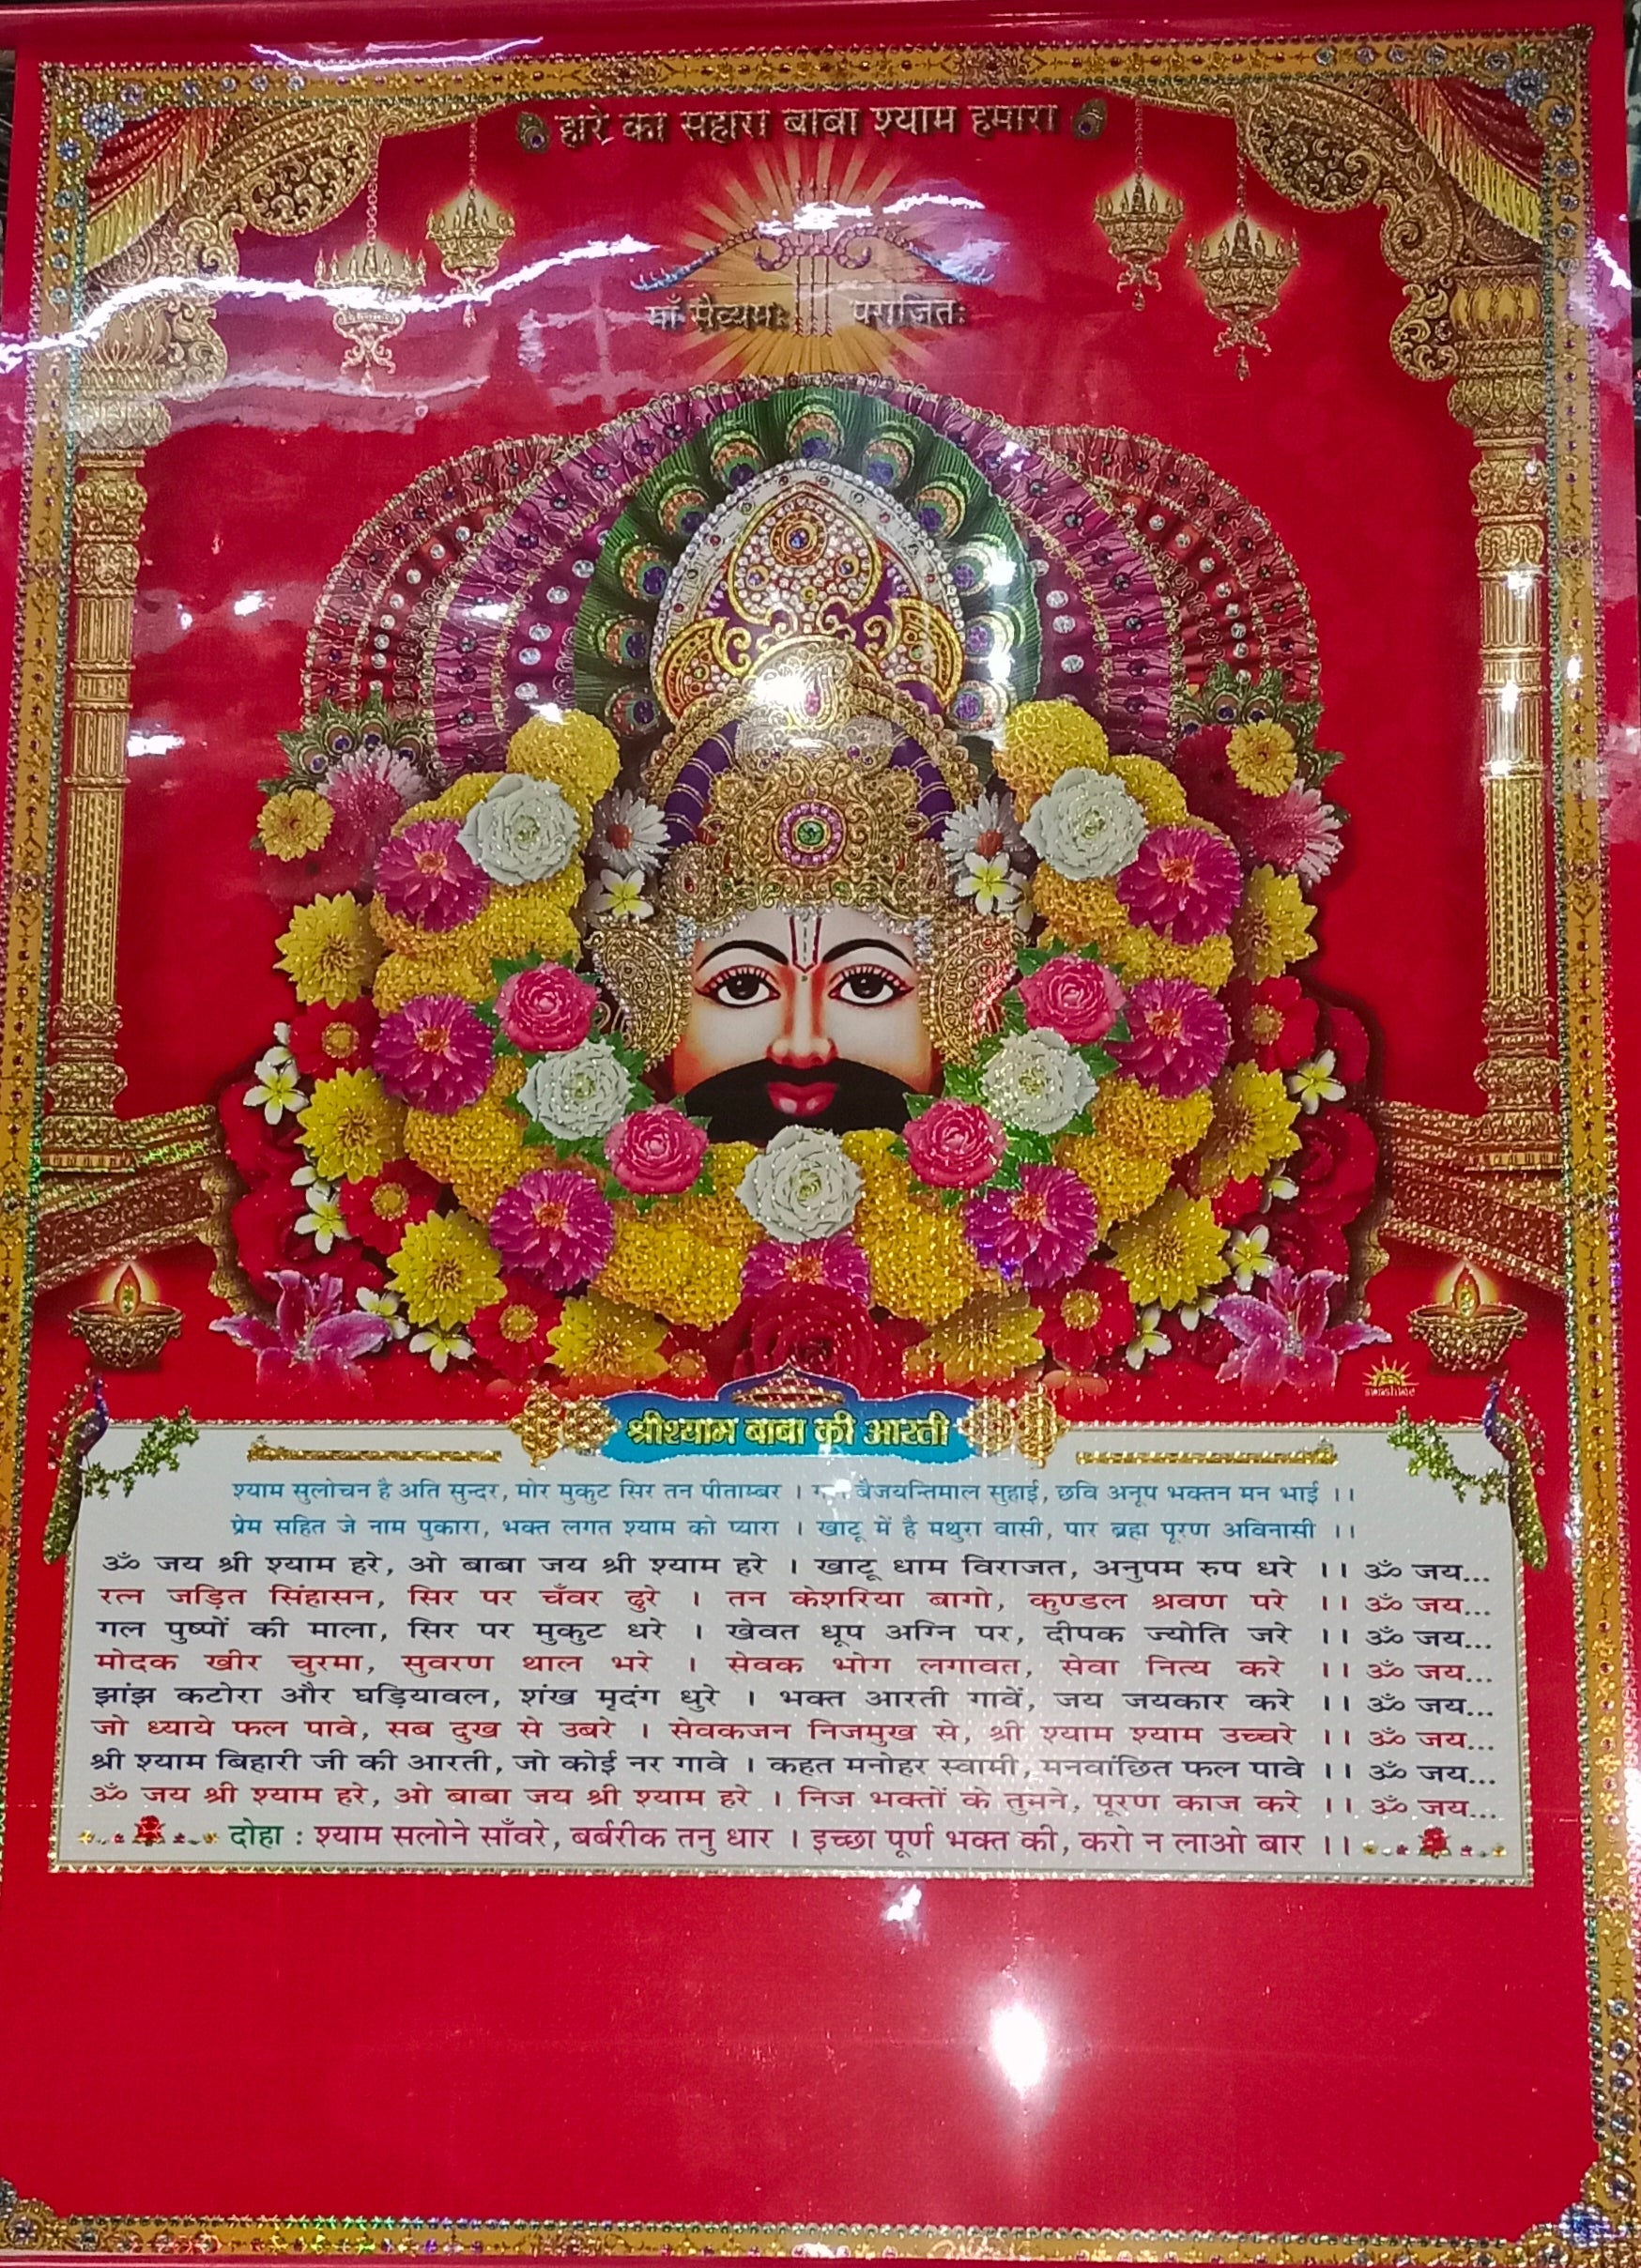 हारे का सहारा बाबा श्याम हमारा
माँ सैव्यम: पराजित:
sunshine
श्रीश्याम बाबा की आरती
श्याम सुलोचन है अति सुन्दर, मोर मुकुट सिर तन पीताम्बर । बैजयन्तिमाल सुहाई, छवि अनूप भक्तन मन भाई ।।
प्रेम सहित जे नाम पुकारा, भक्त लगत श्याम को प्यारा । खाटू में है मथुरा वासी, पार ब्रह्म पूरण अविनासी ।।
ॐ जय श्री श्याम हरे, ओ बाबा जय श्री श्याम हरे । खाटू धाम विराजत, अनुपम रुप धरे ।। ॐ जय...
रत्न जड़ित सिंहासन, सिर पर चँवर ढुरे । तन केशरिया बागो, कुण्डल श्रवण परे ।। ॐ जय...
गल पुष्पों की माला, सिर पर मुकुट धरे । खेवत धूप अग्नि पर, दीपक ज्योति जरे ।। ॐ जय...
मोदक खीर चुरमा, सुवरण थाल भरे । सेवक भोग लगावत, सेवा नित्य करे ।। ॐ जय...
झांझ कटोरा और घड़ियावल, शंख मृदंग धुरे । भक्त आरती गावें, जय जयकार करे ।। ॐ जय...
जो ध्याये फल पावे, सब दुख से उबरे । सेवकजन निजमुख से, श्री श्याम श्याम उच्चरे ।। ॐ जय...
श्री श्याम बिहारी जी की आरती, जो कोई नर गावे । कहत मनोहर स्वामी, मनवांछित फल पावे ।। ॐ जय...
ॐ जय श्री श्याम हरे, ओ बाबा जय श्री श्याम हरे । निज भक्तों के तुमने, पूरण काज करे ।। ॐ जय...
दोहा : श्याम सलोने साँवरे, बर्बरीक तनु धार । इच्छा पूर्ण भक्त की, करो न लाओ बार ।।